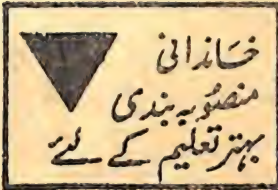 خاندانی
منصوبہ بندی
بہتر تعلیم کے لئے